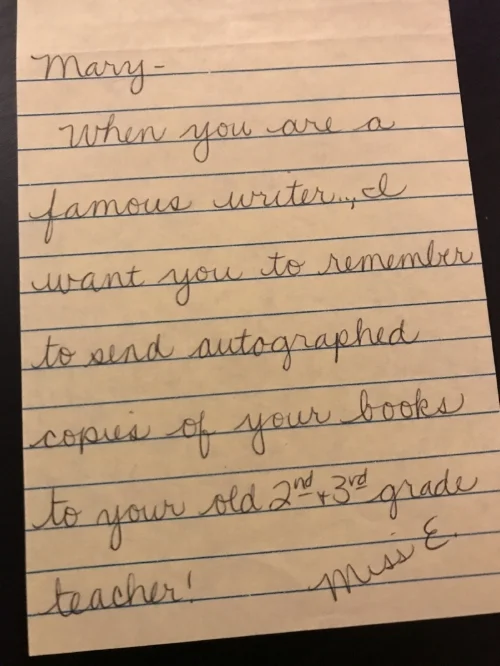 Mary-
When you are a
famous writer..., I
want you to remember
to send autographed
copies of your books
to your old 2nd + 3rd grade
teacher!
Miss E.